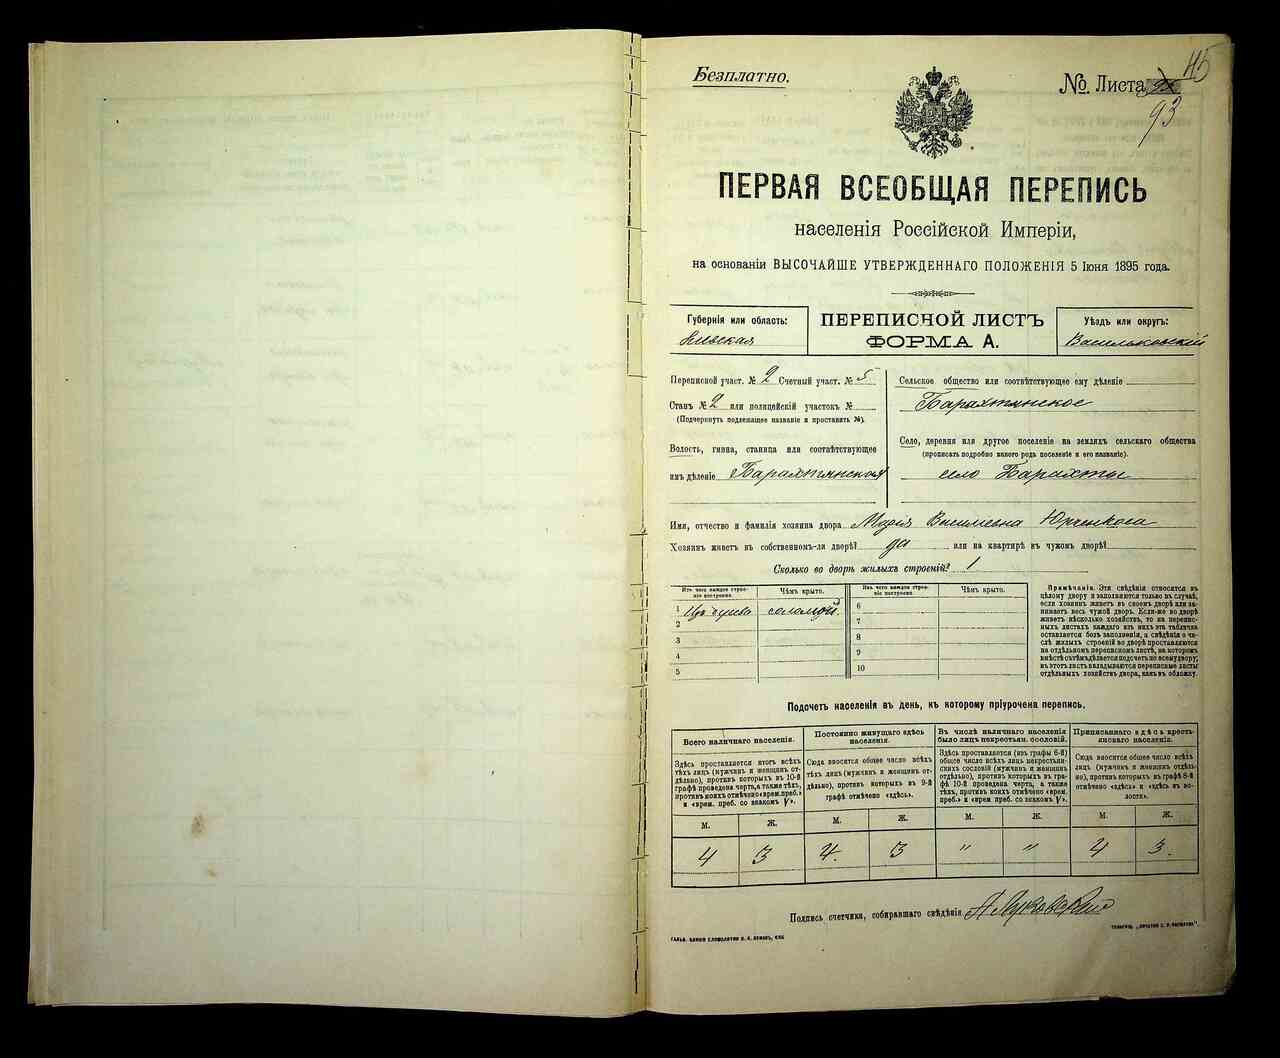 Безплатно.
№ Листа
45
93
ПЕРВАЯ ВСЕОБЩАЯ ПЕРЕПИСЬ
населенія Россійской Имперіи,
на основаніи ВЫСОЧАЙШЕ УТВЕРЖДЕННАГО ПОЛОЖЕНІЯ 5 Іюня 1895 года.
Губернія или область:
Кіевская
ПЕРЕПИСНОЙ ЛИСТЪ
ФОРМА А.
Уѣздъ или округъ:
Васильковскій
Переписной участ. № 2 Счетный участ. № 5
Станъ № 2 или полицейскій участокъ №
(Подчеркнуть подлежащее названіе и проставить №).
Волость, гмина, станица или соотвѣтствующее
имъ дѣленіе Барахтянская
Сельское общество или соотвѣтствующее ему дѣленіе
Барахтянское
Село, деревня или другое поселеніе на земляхъ сельскаго общества
(прописать подробно какого рода поселеніе и его названіе).
село Барахты
Имя, отчество и фамилія хозяина двора Марія
Хозяинъ живетъ въ собственномъ-ли дворѣ? да или на квартирѣ въ чужомъ дворѣ?
Сколько во дворѣ жилыхъ строеній? 1
Изъ чего каждое строеніе построено.
Чѣмъ крыто.
Изъ чего каждое строеніе построено.
Чѣмъ крыто.
1 Изъ дерева соломой
2
3
4
5
6
7
8
9
10
Примѣчаніе. Эти свѣдѣнія относятся къ
цѣлому двору и заполняются только въ случаѣ,
если хозяинъ живетъ въ своемъ дворѣ или занимаетъ
весь чужой дворъ. Если-же во дворѣ
живетъ нѣсколько хозяйствъ, то на переписныхъ
листахъ каждаго изъ нихъ эта табличка
оставляется безъ заполненія, а свѣдѣнія о числѣ
жилыхъ строеній во дворѣ проставляются
на отдѣльномъ переписномъ листѣ, на которомъ
вмѣстѣ съ тѣмъ дѣлается подсчетъ по всему двору;
въ этотъ листъ вкладываются переписные листы
отдѣльныхъ хозяйствъ двора, какъ въ обложку.
Подсчетъ населенія въ день, къ которому пріурочена перепись.
Всего наличнаго населенія.
Здѣсь проставляется итогъ всѣхъ
тѣхъ лицъ (мужчинъ и женщинъ отдѣльно),
противъ которыхъ въ 10-й
графѣ проведена черта, а также тѣхъ,
противъ коихъ отмѣчено «врем. преб.»
и «врем. преб. со знакомъ V».
Постоянно живущаго здѣсь
населенія.
Сюда вносится общее число всѣхъ
тѣхъ лицъ (мужчинъ и женщинъ отдѣльно),
противъ которыхъ въ 9-й
графѣ отмѣчено «здѣсь».
Въ числѣ наличнаго населенія
было лицъ некрестьян. сословій.
Здѣсь проставляется (изъ графы 6-й)
общее число всѣхъ лицъ некрестьянскихъ
сословій (мужчинъ и женщинъ
отдѣльно), противъ которыхъ въ графѣ
10-й проведена черта, а также
тѣхъ, противъ коихъ отмѣчено «врем.
преб.» и «врем. преб. со знакомъ V».
Приписаннаго здѣсь крестьянскаго
населенія.
Сюда вносится общее число всѣхъ
лицъ (мужчинъ и женщинъ отдѣльно),
противъ которыхъ въ графѣ 8-й
отмѣчено «здѣсь» и «здѣсь въ волости».
М. Ж. М. Ж. М. Ж. М. Ж.
4 3 4. 3 " " 4 3.
Подпись счетчика, собиравшаго свѣдѣнія